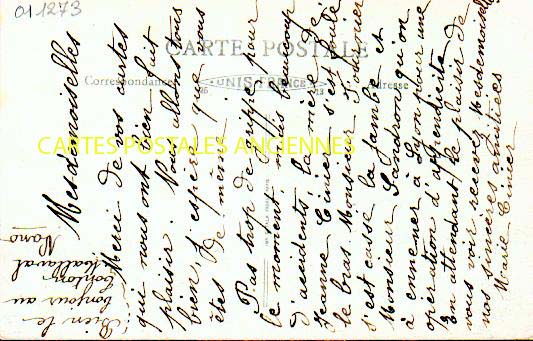 011273
CARTE POSTALE
Correspondance
UNIS FRANCE
Adresse
CARTES POSTALES ANCIENNES
Mesdemoiselles
Merci de vos cartes
qui nous ont bien fait
plaisir. Vous allez tous
bien j'espère que vous
êtes de même ici
Pas trop de grippe pour
le moment, mais beaucoup
d'accidents la mère de
Jeanne Cinier s'est foulé
le bras Monsieur
s'est cassé la jambe et
Monsieur Sandron qu'on
a emmené à Lyon pour une
opération d'appendicite
En attendant le plaisir de
vous voir recevez Mesdemoiselles
nos sincères amitiées
Marie Cinier
Bien le
bonjour au
tonton
Nano